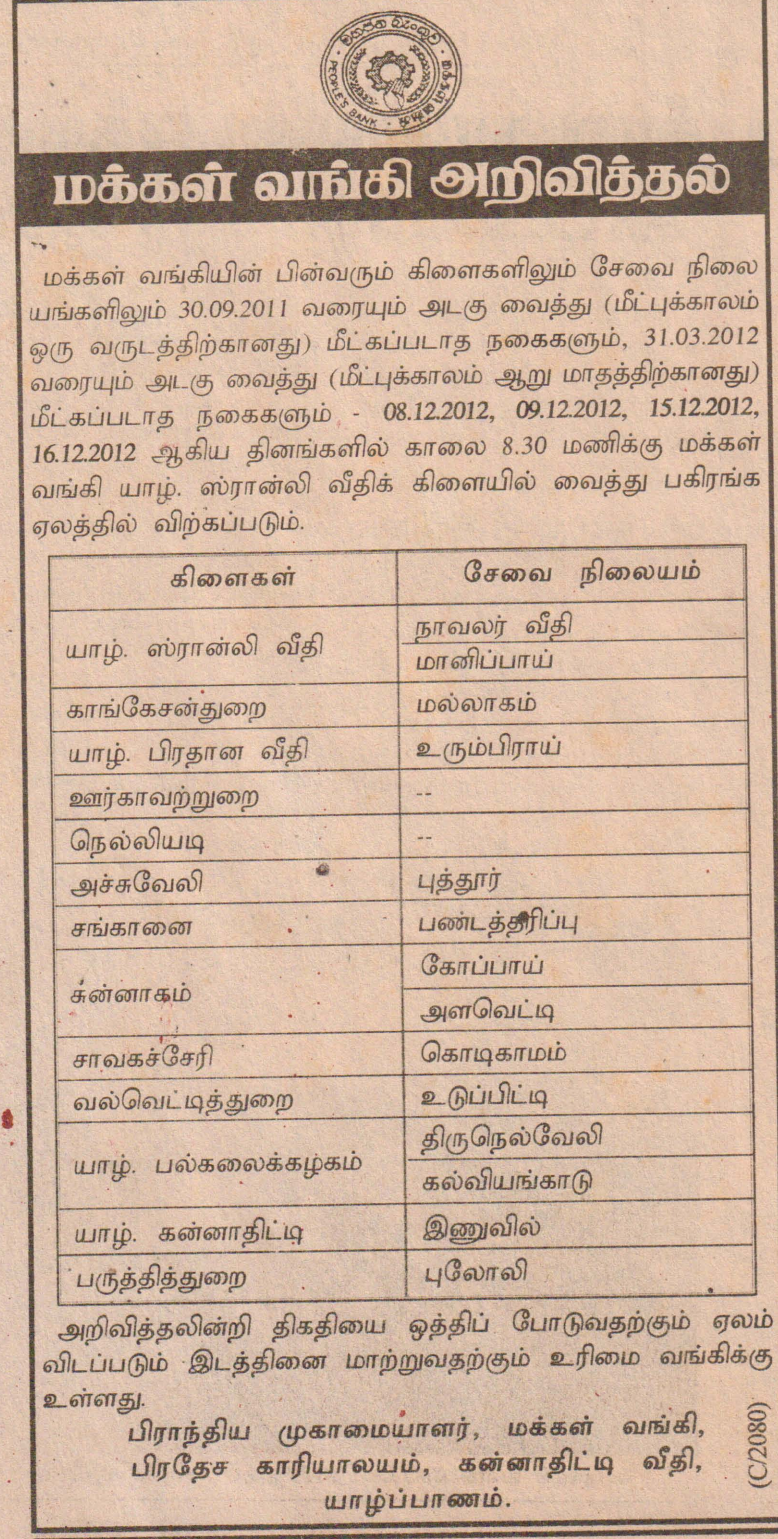 මහජන බැංකුව
PEOPLE'S BANK
மக்கள் வங்கி அறிவித்தல்
மக்கள் வங்கியின் பின்வரும் கிளைகளிலும் சேவை நிலை
யங்களிலும் 30.09.2011 வரையும் அடகு வைத்து (மீட்புக்காலம்
ஒரு வருடத்திற்கானது) மீட்கப்படாத நகைகளும், 31.03.2012
வரையும் அடகு வைத்து (மீட்புக்காலம் ஆறு மாதத்திற்கானது)
மீட்கப்படாத நகைகளும் - 08.12.2012, 09.12.2012, 15.12.2012,
16.12.2012 ஆகிய தினங்களில் காலை 8.30 மணிக்கு மக்கள்
வங்கி யாழ். ஸ்ரான்லி வீதிக் கிளையில் வைத்து பகிரங்க
ஏலத்தில் விற்கப்படும்.
கிளைகள் சேவை நிலையம்
யாழ். ஸ்ரான்லி வீதி நாவலர் வீதி
மானிப்பாய்
காங்கேசன்துறை மல்லாகம்
யாழ். பிரதான வீதி உரும்பிராய்
ஊர்காவற்றுறை --
நெல்லியடி --
அச்சுவேலி புத்தூர்
சங்கானை பண்டத்தரிப்பு
சுன்னாகம் கோப்பாய்
அளவெட்டி
சாவகச்சேரி கொடிகாமம்
வல்வெட்டித்துறை உடுப்பிட்டி
யாழ். பல்கலைக்கழகம் திருநெல்வேலி
கல்வியங்காடு
யாழ். கன்னாதிட்டி இணுவில்
பருத்தித்துறை புலோலி
அறிவித்தலின்றி திகதியை ஒத்திப் போடுவதற்கும் ஏலம்
விடப்படும் இடத்தினை மாற்றுவதற்கும் உரிமை வங்கிக்கு
உள்ளது.
பிராந்திய முகாமையாளர், மக்கள் வங்கி,
பிரதேச காரியாலயம், கன்னாதிட்டி வீதி,
யாழ்ப்பாணம்.
(C/2080)